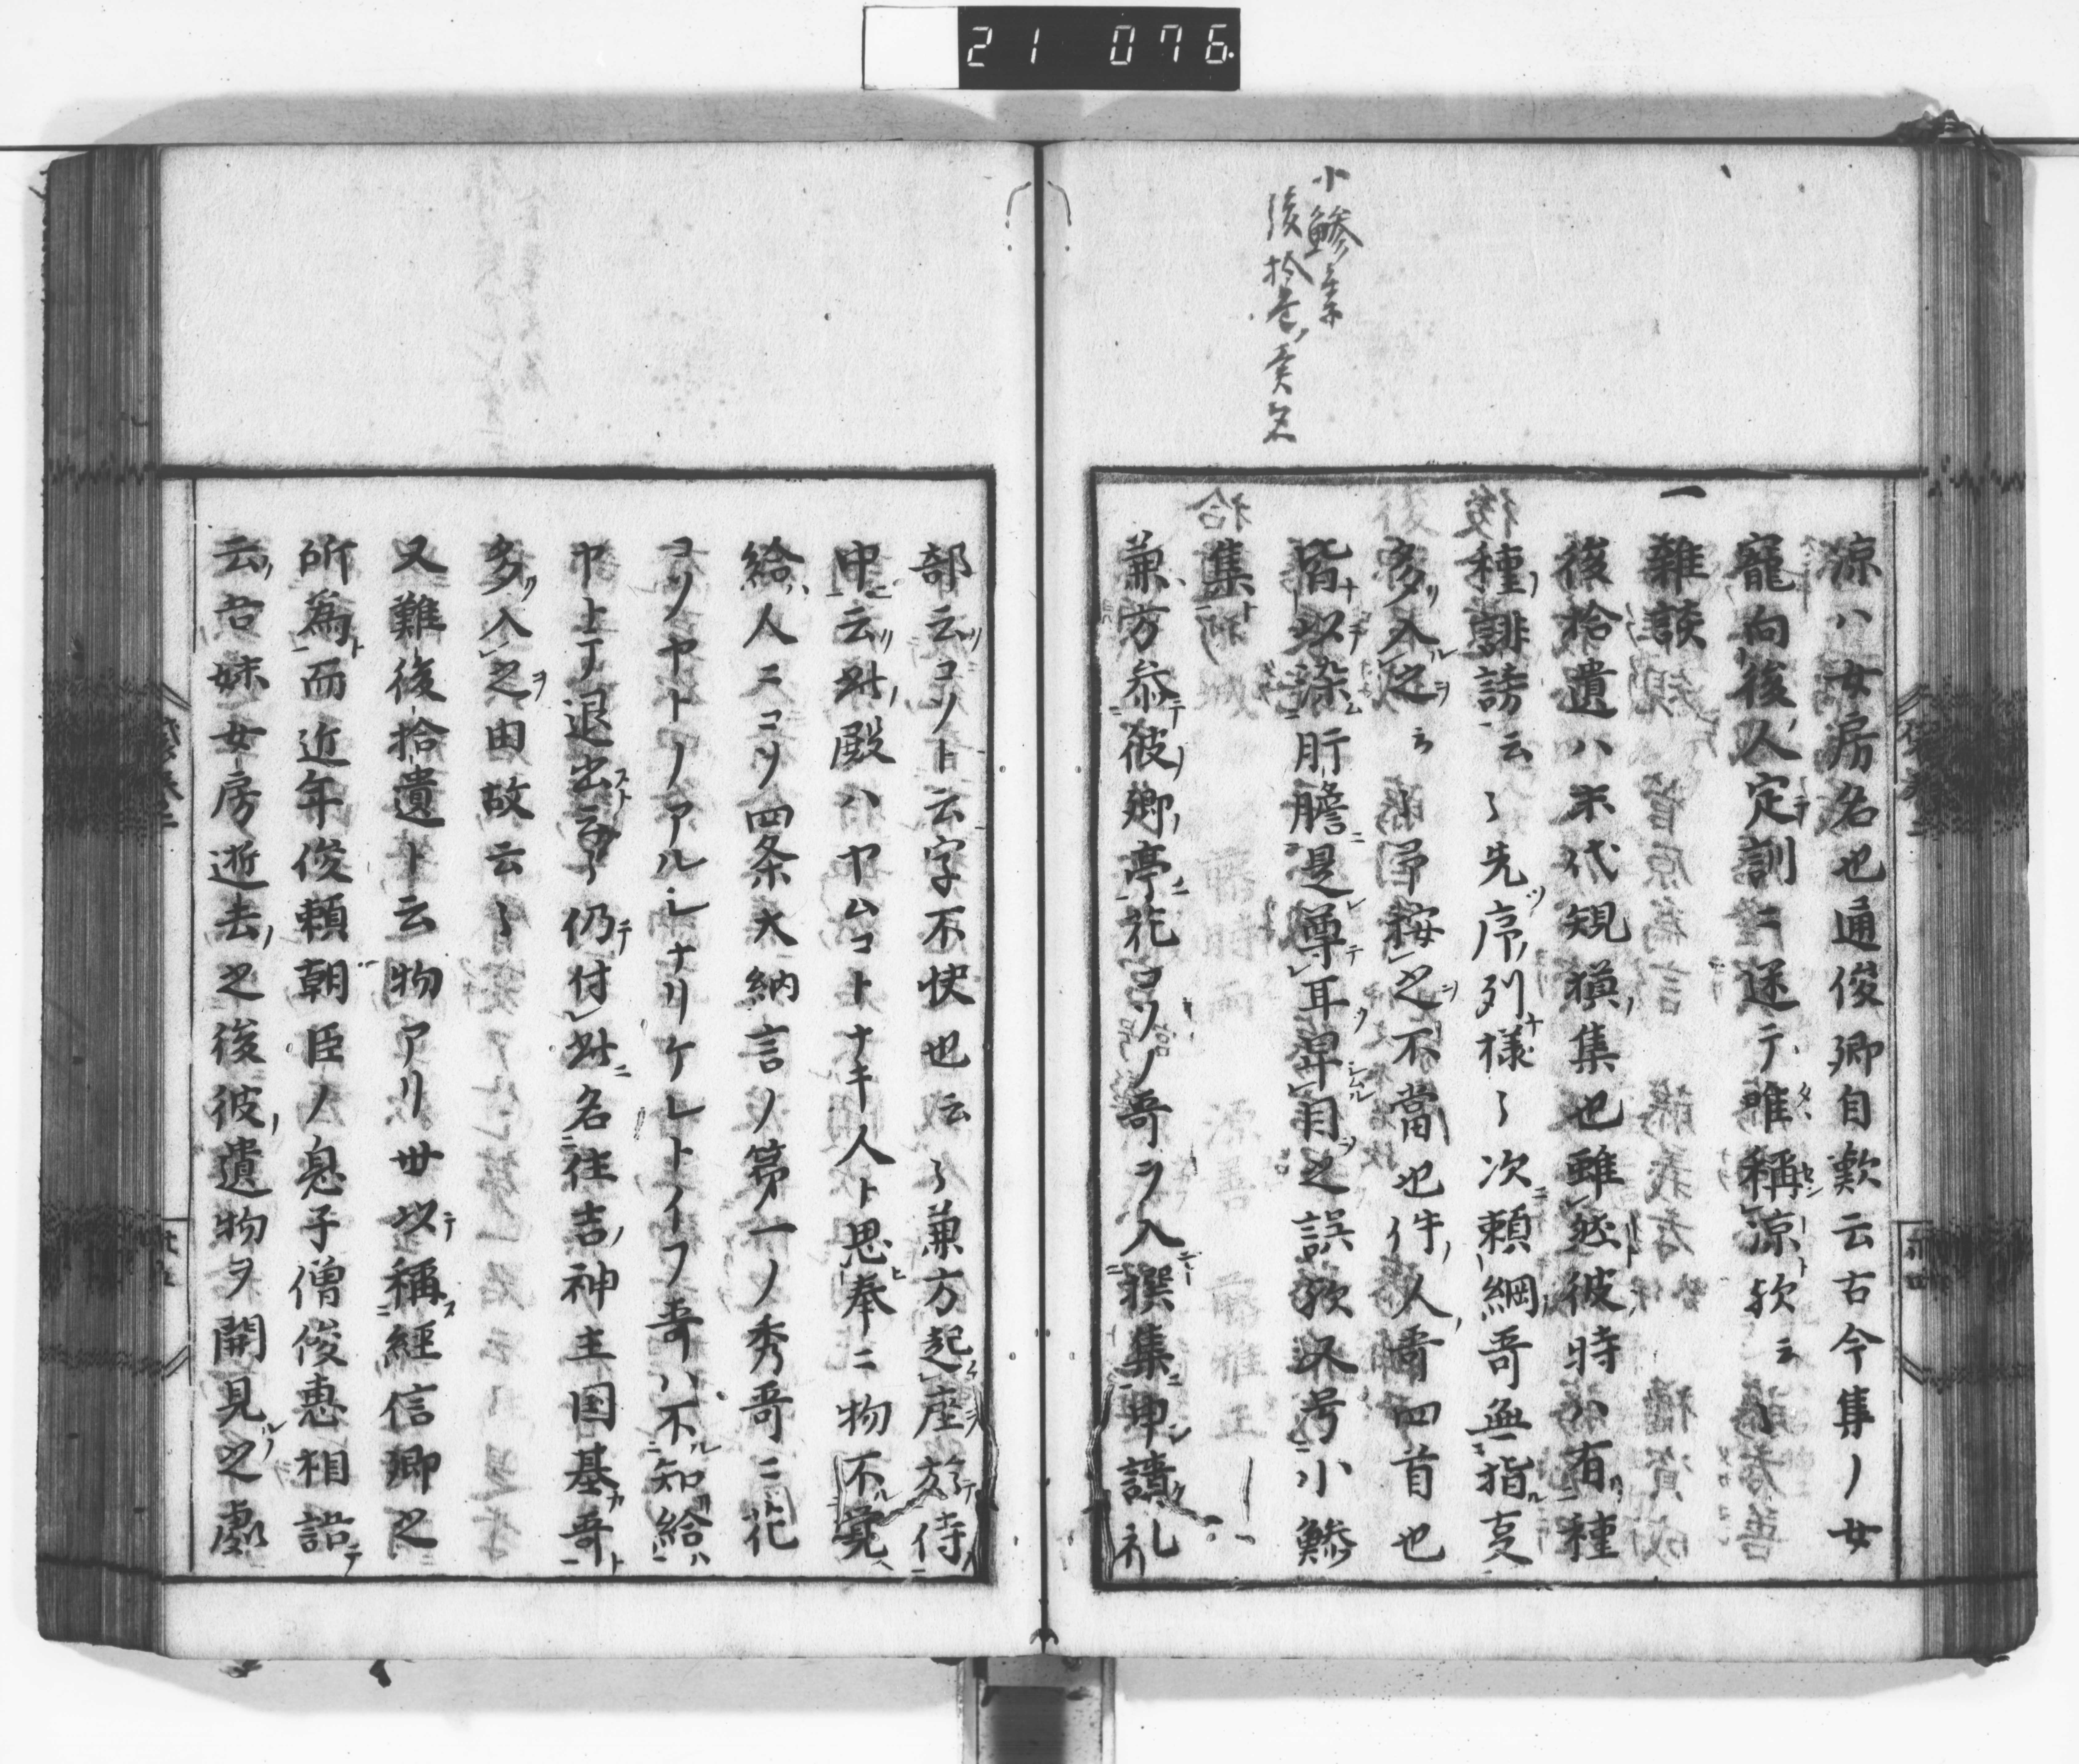 21 076
小鰺集
後拾巻ノ異名
涼ハ女房名也通俊卿自歎云古今集ノ女
寵向後人定訓ニ迷テ唯稱涼歟云々
一雜談
後拾遺ハ末代規模集也雖然彼時ハ有種
種誹謗云々先序列様々次頼綱哥無指㕝
多入之云々予按之不當也件人哥四首也
皆以染肝膽是尊耳卑目之誤歟又号小鰺
集
兼方參彼卿亭花コソノ哥ヲ入撰集申請礼
部云コソト云字不快也云々兼方起座於侍
中云此殿ハヤムコトナキ人ト思奉ニ物不覚
給人ニコソ四条大納言ノ第一ノ秀哥ニ花
コソヤトノアルシナリケレトイフ哥ハ不知給
ヤト丁退出云々仍付此名住吉神主国基哥
多入之由故云々
又難後拾遺ト云物アリ世以稱經信卿之
所為而近年俊頼朝臣ノ息子僧俊恵相語
云吾妹女房逝去之後彼遺物ヲ開見之處